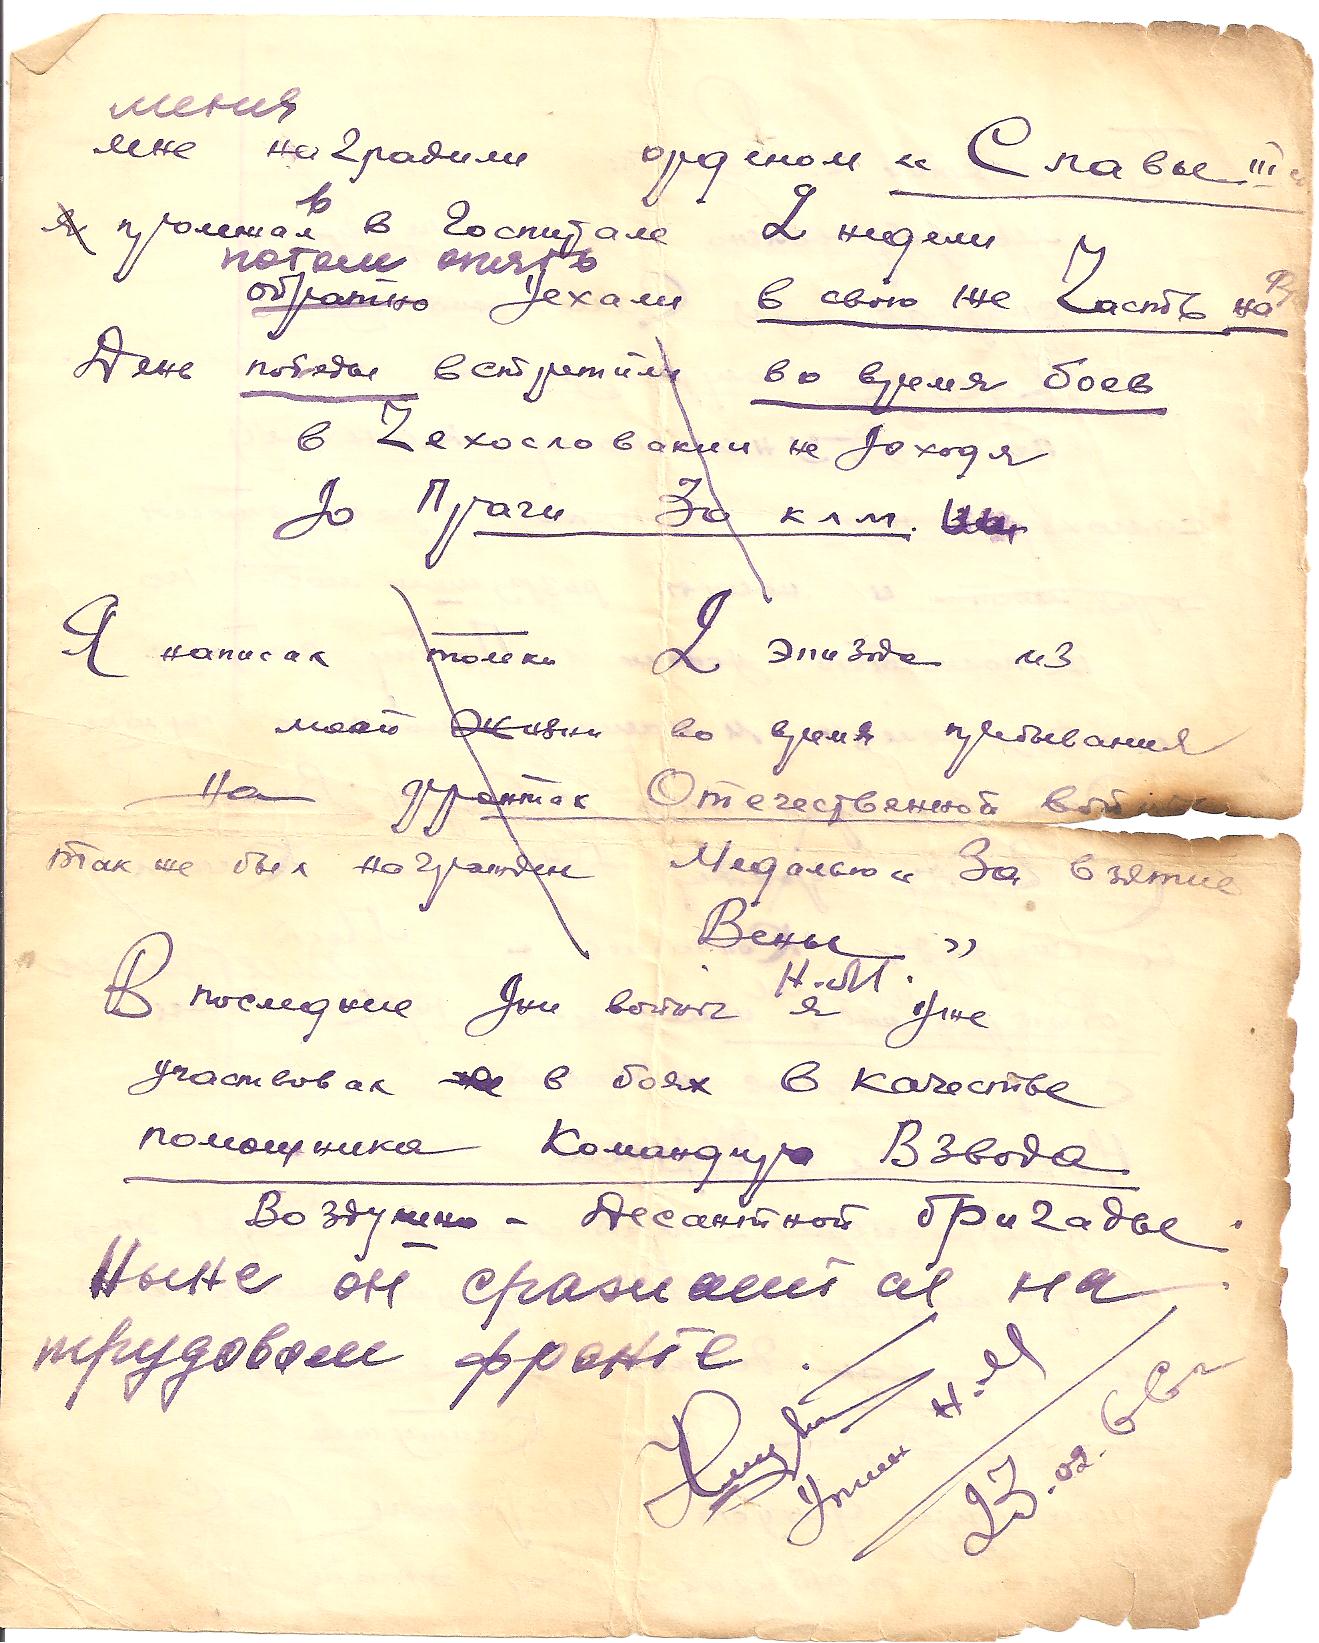 меня
мне наградили орденом „ Славы III
я пролежал в в Госпитале 2 недели
потом опять
обратно уехали в свою же Часть на
День победы встретили во время боев
в Чехословакии не доходя
до Праги 30 клм.
Я написал толки 2 эпизода из
моей жизни во время пребывания
на фронтах Отечественной войны
так же был награжден Медалью „ За взятие
Вены „
Н.М.
В последние дни войны я уже
участвовал в боях в качестве
помощника Командира Взвода
Воздушно - Десантной бригады.
Ныне он сражается на
трудовом фронте.
Н.М
23.02.66г